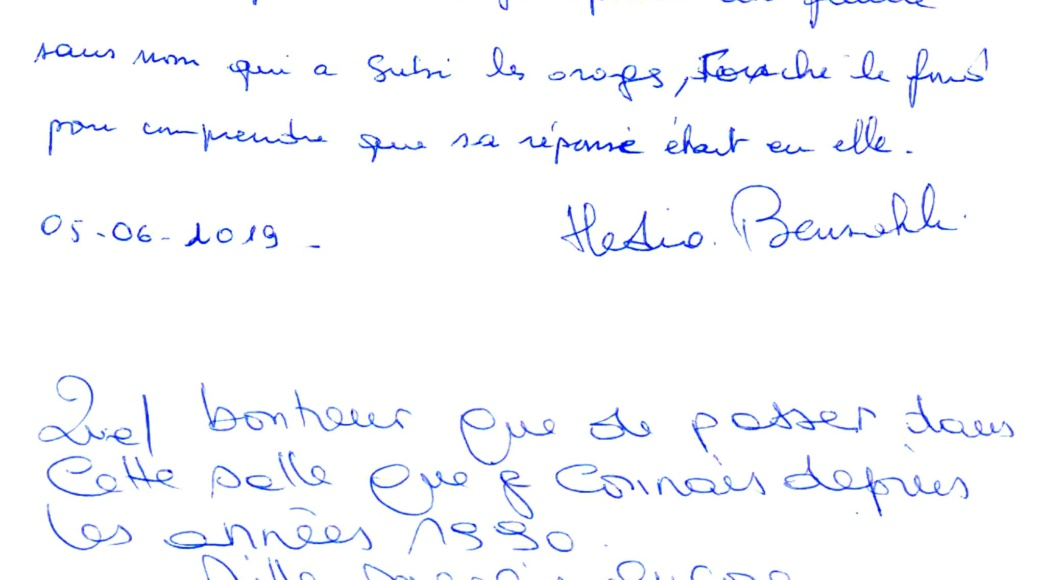 sans nom qui a subi les orages, touché le fond
pour comprendre que sa réponse était en elle.
05-06-2019 -
Quel bonheur que de passer dans
Cette salle que je connais depuis
les années 1990.